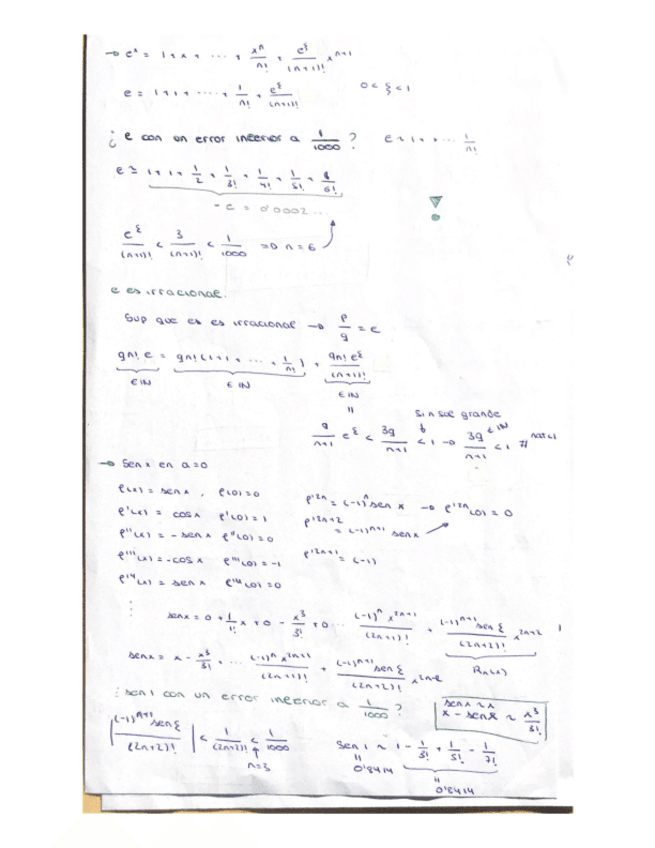 → eˣ = 1 + x + ··· + xⁿ/n! + e^ξ/(n+1)! xⁿ⁺¹
e = 1 + 1 + ····· + 1/n! + e^ξ/(n+1)! 0 < ξ < 1
¿ e con un error inferior a 1/1000 ? e ≃ 1 + ··· 1/n!
e ≃ 1 + 1 + 1/2 + 1/3! + 1/4! + 1/5! + 1/6!
- e = 0'0002 ...
e^ξ/(n+1)! < 3/(n+1)! < 1/1000 ⇒ n = 6
e es irracional.
Sup que es es irracional → p/q = e
qn! e = qn! (1+1+ ··· + 1/n!) + qn! e^ξ/(n+1)!
∈ ℕ ∈ ℕ ∈ ℕ
"
Si n sue grande
q/n+1 e^ξ < 3q/n+1 < 1 → 3q/n+1 < 1 #
→ Sen x en a=0
f(x) = sen x , f(0) = 0
f'(x) = cos x f'(0) = 1
f''(x) = - sen x f''(0) = 0
f'''(x) = -cos x f'''(0) = -1
f'⁴(x) = sen x f'⁴(0) = 0
f'²ⁿ = (-1)ⁿ sen x → f'²ⁿ(0) = 0
f'²ⁿ⁺² = (-1)ⁿ⁺¹ sen x
f'²ⁿ⁺¹ = (-1)
⋮
sen x = 0 + 1/1! x + 0 - x³/3! + 0 ··· (-1)ⁿ x²ⁿ⁺¹/(2n+1)! + (-1)ⁿ⁺¹ sen ξ/(2n+2)! x²ⁿ⁺²
Rn(x)
sen x = x - x³/3! + ··· (-1)ⁿ x²ⁿ⁺¹/(2n+1)! + (-1)ⁿ⁺¹ sen ξ/(2n+2)! x²ⁿ⁺²
¿ sen 1 con un error inferior a 1/1000 ?
sen x ≃ x
x - sen x ≃ x³/3!
|(-1)ⁿ⁺¹ sen ξ/(2n+2)!| < 1/(2n+2)! < 1/1000
n=3
Sen 1 ≃ 1 - 1/3! + 1/5! - 1/7!
"
0'8414
"
0'8414